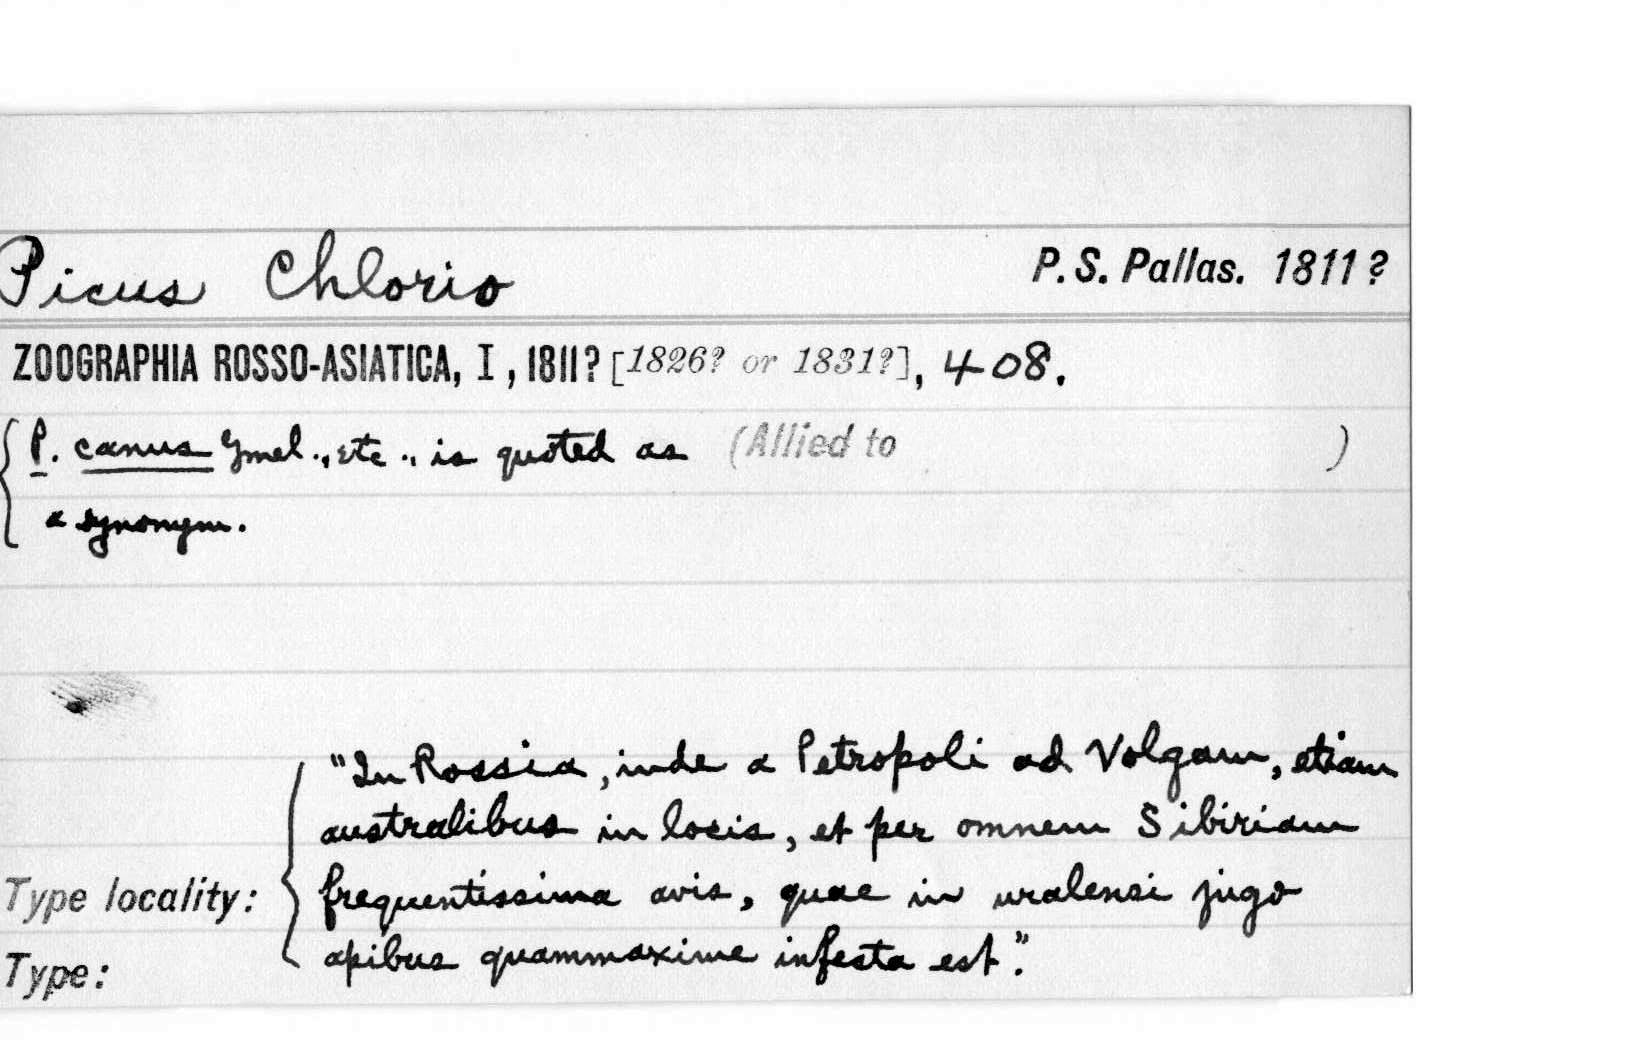 Picus Chlorio P. S. Pallas. 1811?
ZOOGRAPHIA ROSSO-ASIATICA, I, 1811? [1826? or 1831?], 408.
P. canus Gmel., etc., is quoted as (Allied to )
a synonym.
"In Rossia, inde a Petropoli ad Volgam, etiam
australibus in locis, et per omnem Sibiriam
Type locality: frequentissima avis, quae in uralensi jugo
apibus quammaxime infesta est."
Type: